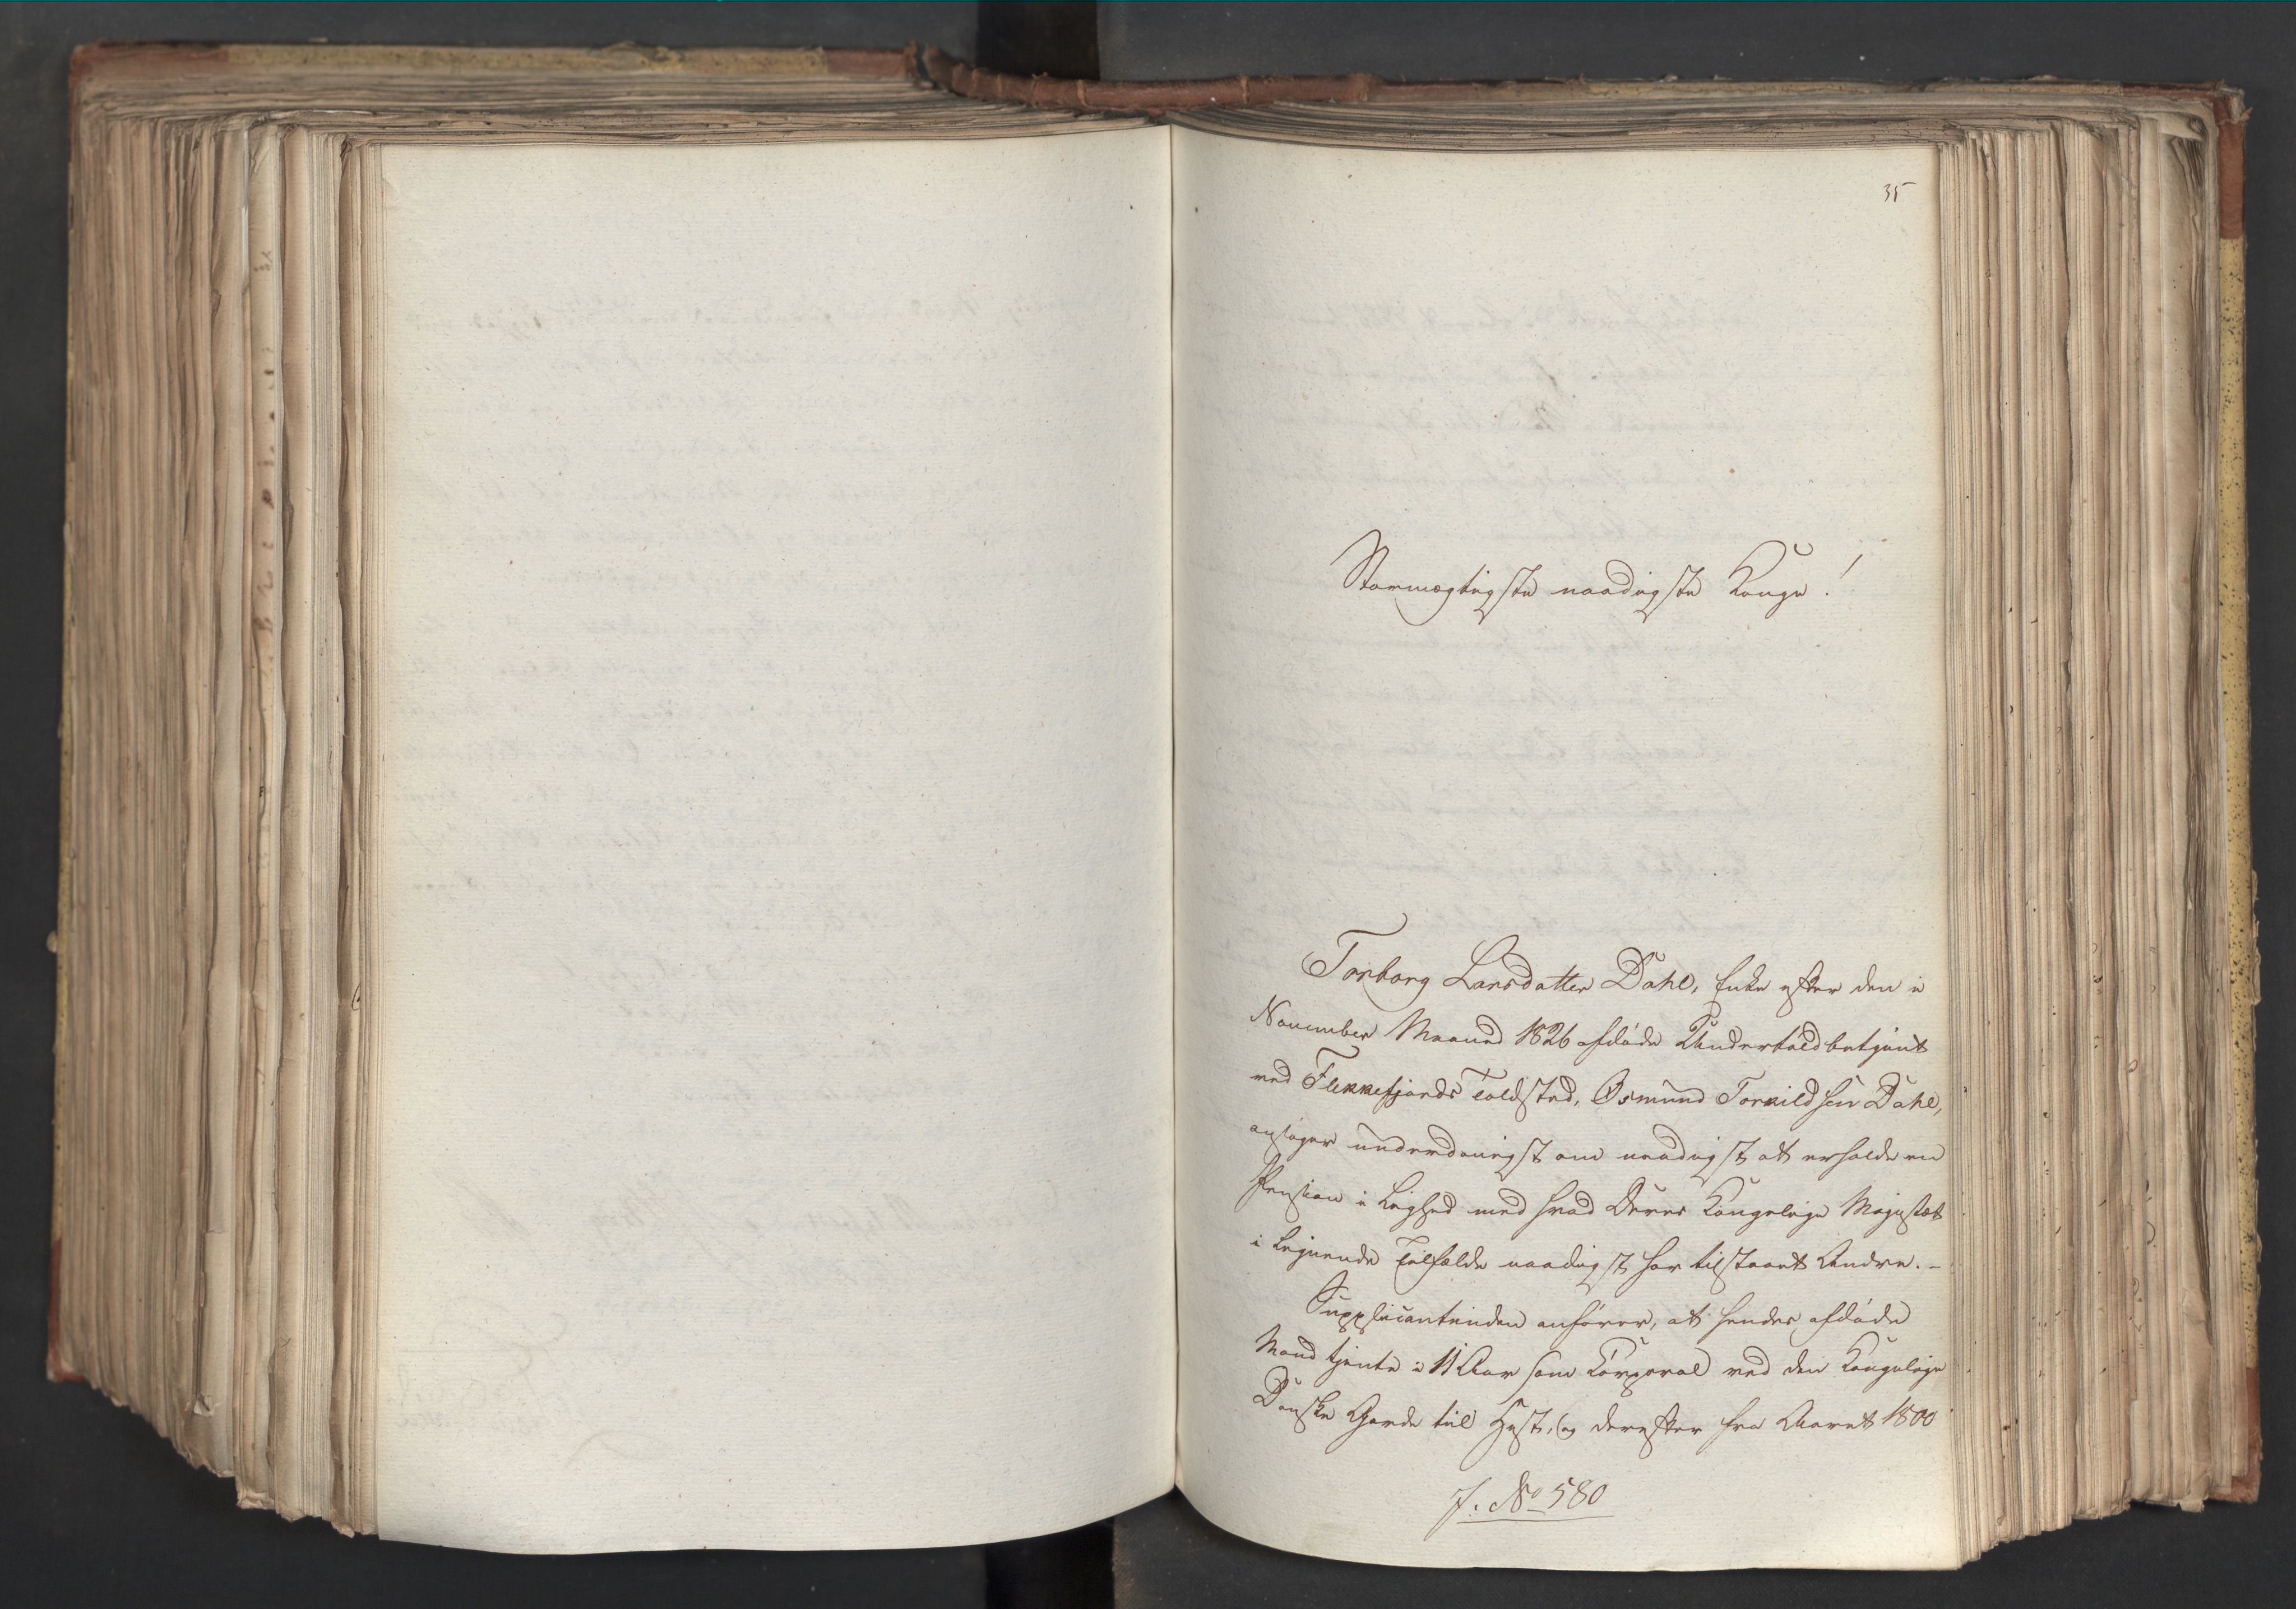 35
Stormægtigste naadigste Konge!
Torborg Larsdatter Dahl, Enke efter den i
November Maaned 1826 afdøde Undertoldbetjent
ved Flekkefjords Toldsted, Osmund Torkildsen Dahl,
ansøger underdanigst om naadigst at erholde en
Pension i Lighed med hvad Deres Kongelige Majestæt
i lignende Tilfælde naadigst har tilstaaet Andre. -
Supplicantinden anfører, at hendes afdøde
Mand tjente i 11 Aar som Corporal ved den Kongelige
Danske Garde til Hest, og derefter fra Aaret 1800
J. No 580